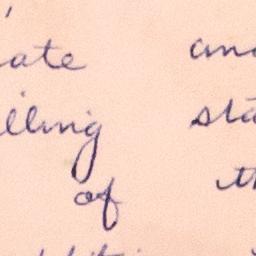 ate an
lling sta
of th